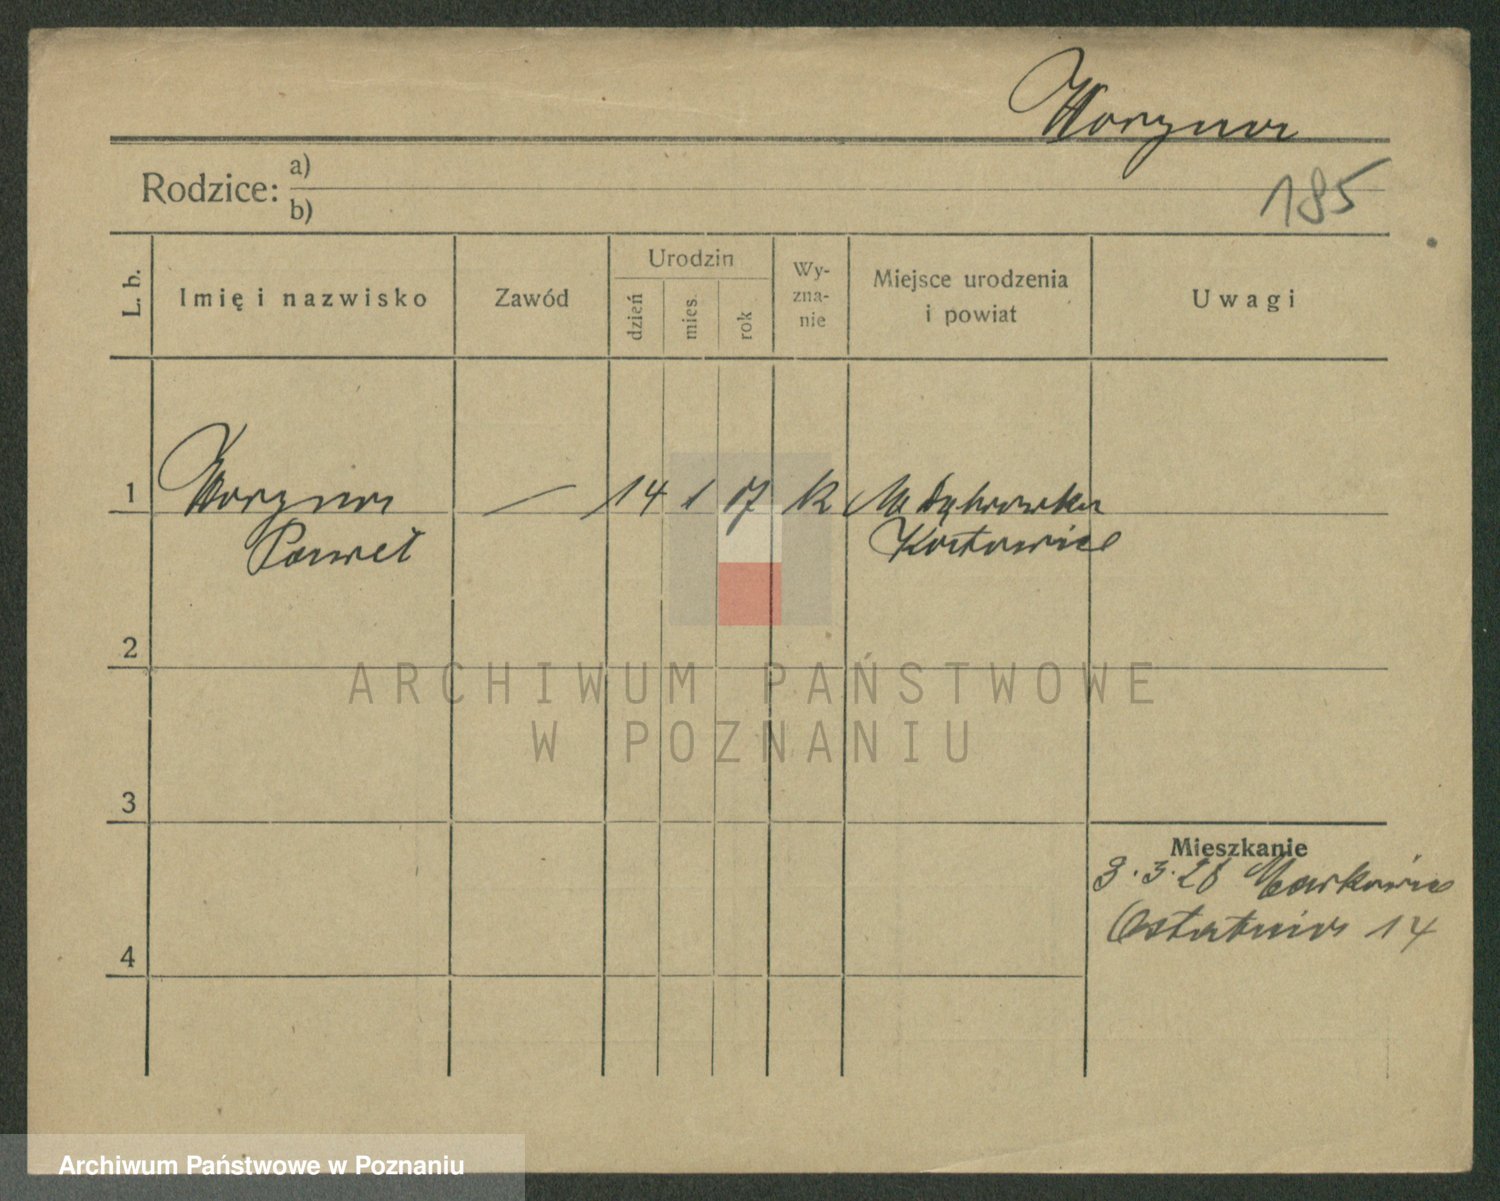 Woryna
Rodzice: a)
b)
185
L. b.
Imię i nazwisko
Zawód
Urodzin
dzień
mies.
rok
Wy-
zna-
nie
Miejsce urodzenia
i powiat
Uwagi
1 Woryna — 14 1 17 K M Dąbrowka
Paweł Katowice
2
3
4
Mieszkanie
3.3.28
Ostatnia 14
ARCHIWUM PAŃSTWOWE
W POZNANIU
Archiwum Państwowe w Poznaniu